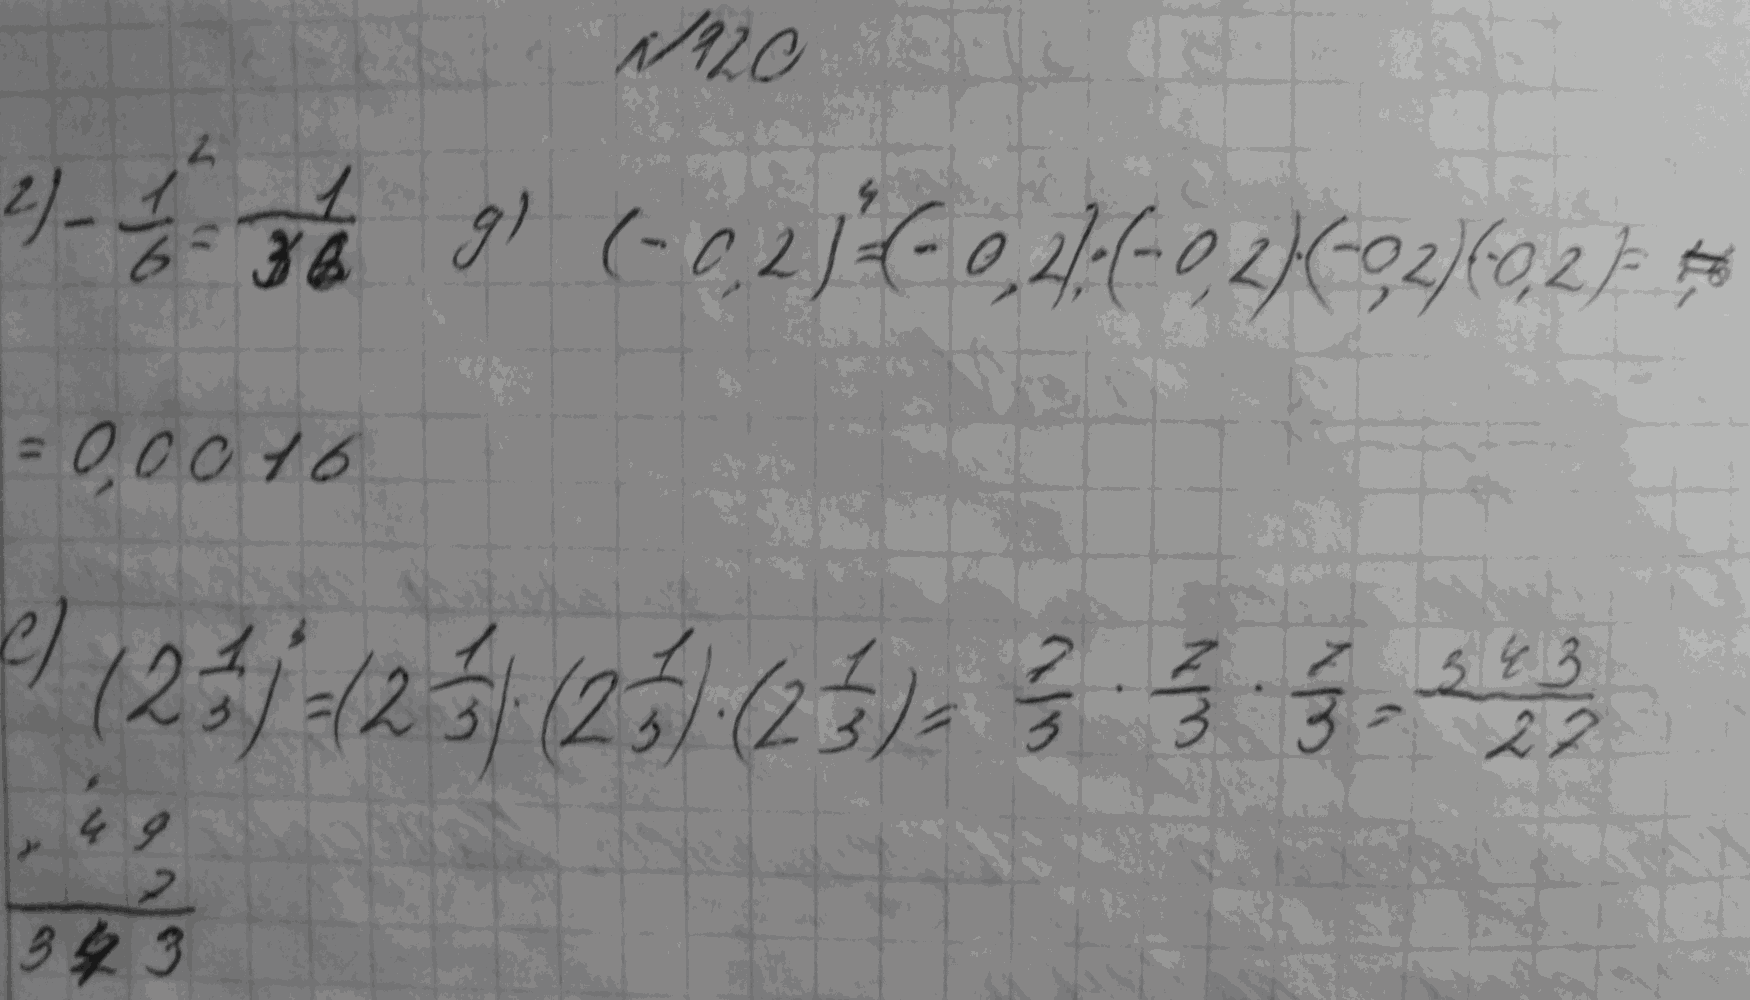 №920
г) - 1/6² = 1/36 д) (-0,2)⁴ = (-0,2)·(-0,2)·(-0,2)(-0,2) =
= 0,0016
е) (2 1/3)³ = (2 1/3)·(2 1/3)·(2 1/3) = 7/3 · 7/3 · 7/3 = 343/27
× 49
7
343